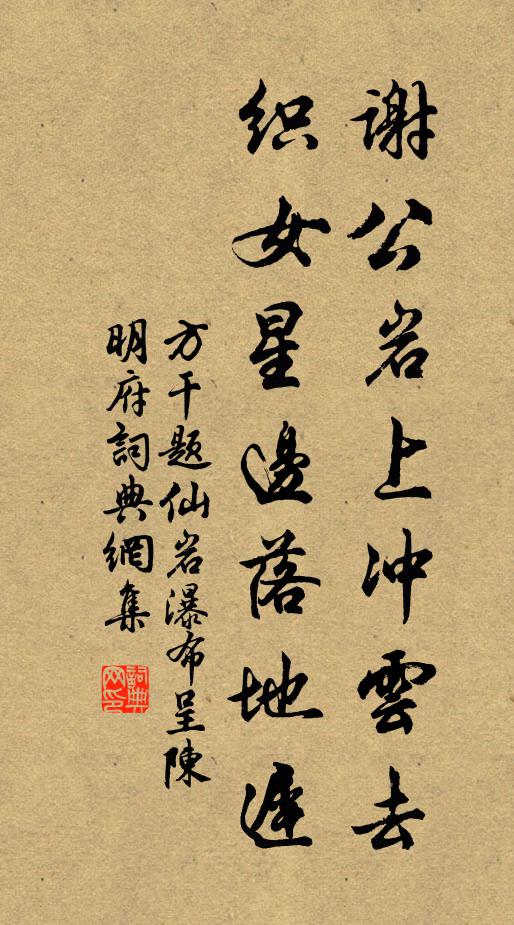 谢公岩上冲雲去
织女星邊落地遲
方干題仙岩瀑布呈陳
明府詞典網集
詞典
网印